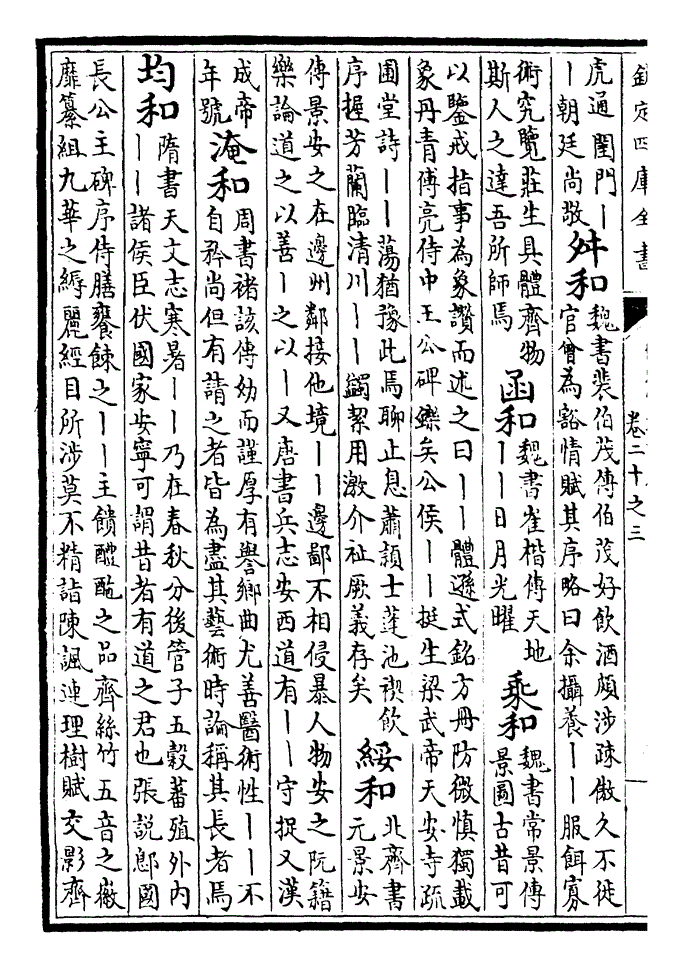 欽定四庫全書
卷二十之三
虎通閨門丨
丨朝廷尚敬
舛和
魏書裴伯茂傳伯茂好飲酒頗涉疎傲久不徙
官曾為豁情賦其序略曰余攝養丨丨服餌寡
術究覽莊生具體齊物
斯人之達吾所師焉
函和
魏書崔楷傳天地
丨丨日月光曜
乘和
魏書常景傳
景圖古昔可
以鑒戒指事為象讚而述之曰丨丨體遜式銘方冊防微慎獨載
象丹青傅亮侍中王公碑鑠矣公侯丨丨挺生梁武帝天安寺疏
圃堂詩丨丨蕩猶豫此焉聊止息蕭頴士蓬池禊飲
序握芳蘭臨清川丨丨蠲絜用激介祉厥義存矣
綏和
北齊書
元景安
傳景安之在邊州鄰接他境丨丨邊鄙不相侵暴人物安之阮籍
樂論道之以善丨之以丨又唐書兵志安西道有丨丨守捉又漢
成帝
年號
淹和
周書褚該傳幼而謹厚有譽鄉曲尤善醫術性丨丨不
自矜尚但有請之者皆為盡其藝術時論稱其長者焉
均和
隋書天文志寒暑丨丨乃在春秋分後管子五穀蕃殖外内
丨丨諸侯臣伏國家安寧可謂昔者有道之君也張說鄎國
長公主碑序侍膳饔餗之丨丨主饋醴酏之品齊絲竹五音之徽
靡纂組九華之縟麗經目所涉莫不精詣陳諷連理樹賦交影齊